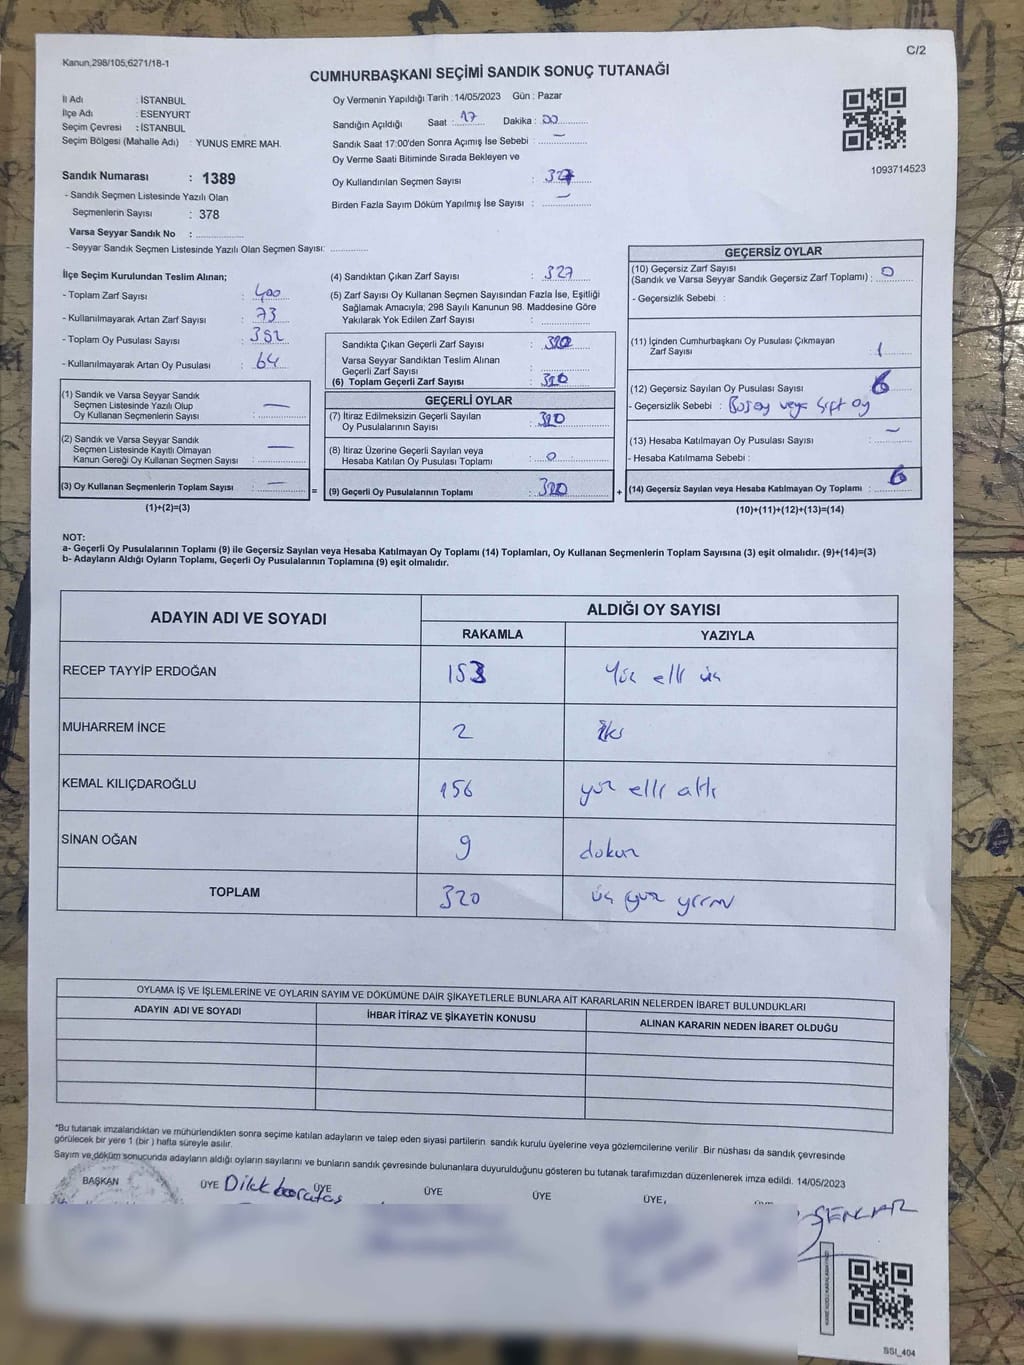 Kanun,298/105,6271/18-1
C/2
CUMHURBAŞKANI SEÇİMİ SANDIK SONUÇ TUTANAĞI
İl Adı : İSTANBUL
İlçe Adı : ESENYURT
Seçim Çevresi : İSTANBUL
Seçim Bölgesi (Mahalle Adı) : YUNUS EMRE MAH.
Sandık Numarası : 1389
- Sandık Seçmen Listesinde Yazılı Olan
Seçmenlerin Sayısı : 378
Varsa Seyyar Sandık No :
- Seyyar Sandık Seçmen Listesinde Yazılı Olan Seçmen Sayısı:
Oy Vermenin Yapıldığı Tarih : 14/05/2023 Gün : Pazar
Sandığın Açıldığı Saat : 17 Dakika : 00
Sandık Saat 17:00'den Sonra Açımış İse Sebebi : —
Oy Verme Saati Bitiminde Sırada Bekleyen ve
Oy Kullandırılan Seçmen Sayısı : 327
Birden Fazla Sayım Döküm Yapılmış İse Sayısı : —
1093714523
İlçe Seçim Kurulundan Teslim Alınan;
- Toplam Zarf Sayısı : 400
- Kullanılmayarak Artan Zarf Sayısı : 73
- Toplam Oy Pusulası Sayısı :
- Kullanılmayarak Artan Oy Pusulası : 64
(1) Sandık ve Varsa Seyyar Sandık
Seçmen Listesinde Yazılı Olup
Oy Kullanan Seçmenlerin Sayısı : —
(2) Sandık ve Varsa Seyyar Sandık
Seçmen Listesinde Kayıtlı Olmayan
Kanun Gereği Oy Kullanan Seçmen Sayısı : —
(3) Oy Kullanan Seçmenlerin Toplam Sayısı : —
(1)+(2)=(3)
=
(4) Sandıktan Çıkan Zarf Sayısı : 327
(5) Zarf Sayısı Oy Kullanan Seçmen Sayısından Fazla İse, Eşitliği
Sağlamak Amacıyla, 298 Sayılı Kanunun 98. Maddesine Göre
Yakılarak Yok Edilen Zarf Sayısı :
Sandıkta Çıkan Geçerli Zarf Sayısı : 320
Varsa Seyyar Sandıktan Teslim Alınan
Geçerli Zarf Sayısı :
(6) Toplam Geçerli Zarf Sayısı : 320
GEÇERLİ OYLAR
(7) İtiraz Edilmeksizin Geçerli Sayılan
Oy Pusulalarının Sayısı : 320
(8) İtiraz Üzerine Geçerli Sayılan veya
Hesaba Katılan Oy Pusulası Toplamı : 0
(9) Geçerli Oy Pusulalarının Toplamı : 320
+
GEÇERSİZ OYLAR
(10) Geçersiz Zarf Sayısı
(Sandık ve Varsa Seyyar Sandık Geçersiz Zarf Toplamı) : 0
- Geçersizlik Sebebi :
(11) İçinden Cumhurbaşkanı Oy Pusulası Çıkmayan
Zarf Sayısı : 1
(12) Geçersiz Sayılan Oy Pusulası Sayısı : 6
- Geçersizlik Sebebi : Boş oy veya çift oy
(13) Hesaba Katılmayan Oy Pusulası Sayısı : —
- Hesaba Katılmama Sebebi :
(14) Geçersiz Sayılan veya Hesaba Katılmayan Oy Toplamı : 6
(10)+(11)+(12)+(13)=(14)
NOT:
a- Geçerli Oy Pusulalarının Toplamı (9) ile Geçersiz Sayılan veya Hesaba Katılmayan Oy Toplamı (14) Toplamları, Oy Kullanan Seçmenlerin Toplam Sayısına (3) eşit olmalıdır. (9)+(14)=(3)
b- Adayların Aldığı Oyların Toplamı, Geçerli Oy Pusulalarının Toplamına (9) eşit olmalıdır.
ADAYIN ADI VE SOYADI
ALDIĞI OY SAYISI
RAKAMLA YAZIYLA
RECEP TAYYİP ERDOĞAN 153 Yüz elli üç
MUHARREM İNCE 2 iki
KEMAL KILIÇDAROĞLU 156 yüz elli altı
SİNAN OĞAN 9 dokuz
TOPLAM 320 üç yüz yirmi
OYLAMA İŞ VE İŞLEMLERİNE VE OYLARIN SAYIM VE DÖKÜMÜNE DAİR ŞİKAYETLERLE BUNLARA AİT KARARLARIN NELERDEN İBARET BULUNDUKLARI
ADAYIN ADI VE SOYADI İHBAR İTİRAZ VE ŞİKAYETİN KONUSU ALINAN KARARIN NEDEN İBARET OLDUĞU
*Bu tutanak imzalandıktan ve mühürlendikten sonra seçime katılan adayların ve talep eden siyasi partilerin sandık kurulu üyelerine veya gözlemcilerine verilir. Bir nüshası da sandık çevresinde
görülecek bir yere 1 (bir) hafta süreyle asılır.
Sayım ve döküm sonucunda adayların aldığı oyların sayılarını ve bunların sandık çevresinde bulunanlara duyurulduğunu gösteren bu tutanak tarafımızdan düzenlenerek imza edildi. 14/05/2023
BAŞKAN ÜYE ÜYE ÜYE ÜYE ÜYE
ŞENLAR
SSI_404